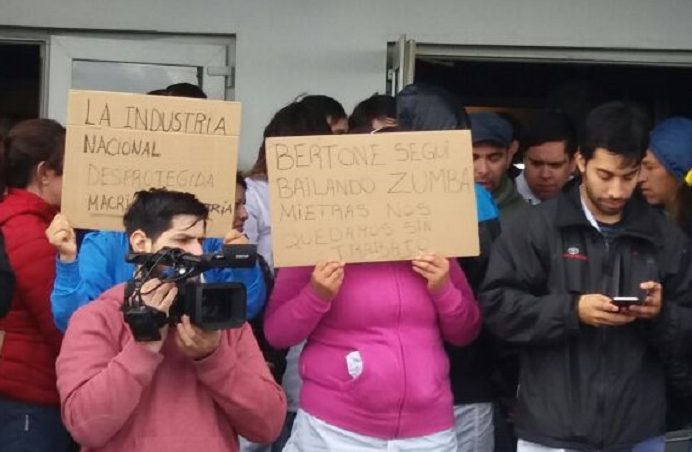 LA INDUSTRIA
NACIONAL
DESPROTEGIDA
BERTONE SEGUI
BAILANDO ZUMBA
MIETRAS NOS
QUEDAMOS SIN
TRABAJO